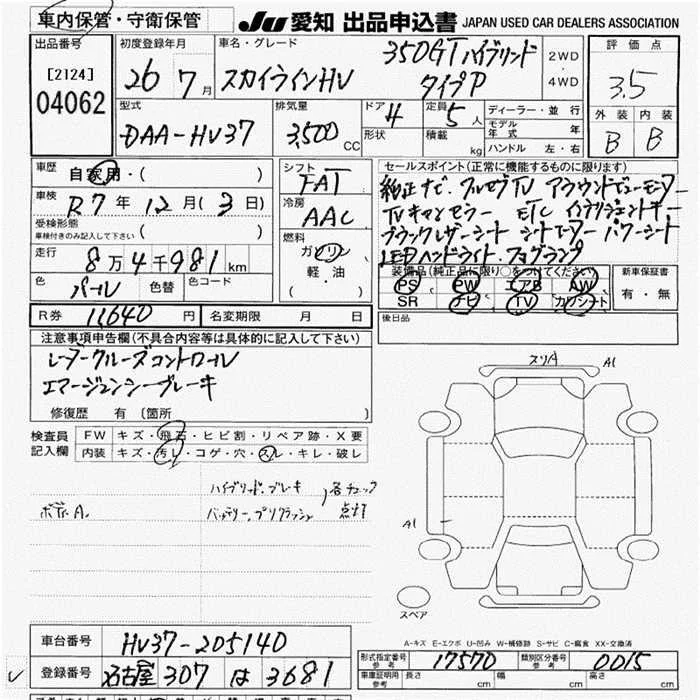 車内保管・守衛保管
JU 愛知 出品申込書 JAPAN USED CAR DEALERS ASSOCIATION
出品番号
[2124]
04062
初度登録年月
26 7月
車名・グレード
350GTハイブリッド
スカイラインHV タイプP
2WD
・
4WD
評価点
3.5
外装 内装
B B
型式
DAA-HV37
排気量
3,500 CC
ドア 4
形状
定員 5人
積載 kg
ディーラー・並行
モデル年式 年
ハンドル 左・右
車歴
自家用・( )
車検
R7年12月(3日)
受検形態
車検付きのみ記入して下さい ( )
走行
8万4千981km
色 パール 色替 色コード
シフト
FAT
冷房
AAC
燃料
ガソリン
軽・油
( )
セールスポイント(正常に機能するものに限ります)
純正ナビ・フルセグTV アラウンドビューモニター
TVキャンセラー ETC インテリジェントキー
ブラックレザーシート シートヒーター パワーシート
LEDヘッドライト・フォグランプ
装備品(純正品に限り○をつけてください)
PS PW エアB AW
SR ナビ TV カワシート
新車保証書
有・無
R券 11640円 名変期限 月 日
後日品
注意事項申告欄(不具合内容等は具体的に記入して下さい)
レーダークルーズコントロール
エマージェンシーブレーキ
修復歴 有 〔箇所 〕
検査員
記入欄
FW キズ・飛石・ヒビ割・リペア跡・X要
内装 キズ・汚レ・コゲ・穴・スレ・キレ・破レ
ハイブリッド・ブレーキ
バッテリー、プリクラッシュ
各チェック
点灯
ボデーA.
スリA A1
A1
スペア
A-キズ E-エクボ U-凹み W-補修跡 S-サビ C-腐食 XX-交換済
車台番号 HV37-205140
登録番号 名古屋 307 は 3681
型式指定番号
参考
17570
類別区分番号
参考
0015
車庫証明用
参考
長さ cm 幅 cm 高さ cm